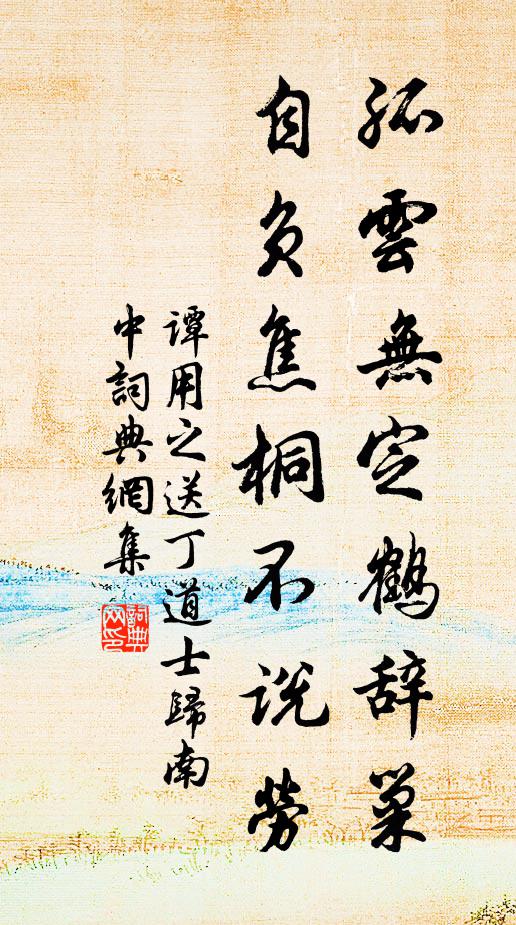 孤雲無定鶴辞巢
自负焦桐不说劳
譚用之送丁道士歸南
中詞典網集
詞典網印